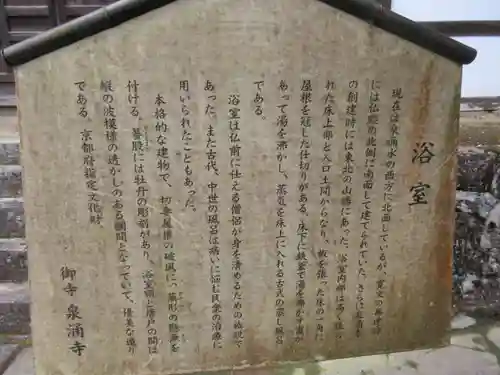 浴室
現在は泉涌水の西方に北面しているが、寛文の再建時
には仏殿の北側に南面して建てられていた。さらに
の創建時には東北の山腹にあった。浴室内部は高く造ら
れた床上部と入口土間からなり、板を張った床の一角に
屋根を冠した仕切りがある。床下に鉄釜で湯を沸かす竈が
あって湯を沸かし、蒸気を床上に入れる古式の蒸し風呂
である。
浴室は仏前に仕える僧侶が身を清めるための施設で
あった。また古代、中世の風呂は病いに悩む民衆の治療に
用いられたこともあった。
本格的な建物で、切妻屋根の破風に、蕪形の懸魚を
付ける。蟇股には牡丹の彫刻があり、浴室額と唐戸の間は
縦の波模様の透かしのある欄間となっていて、優美な造り
である。京都府指定文化財
御寺・泉涌寺